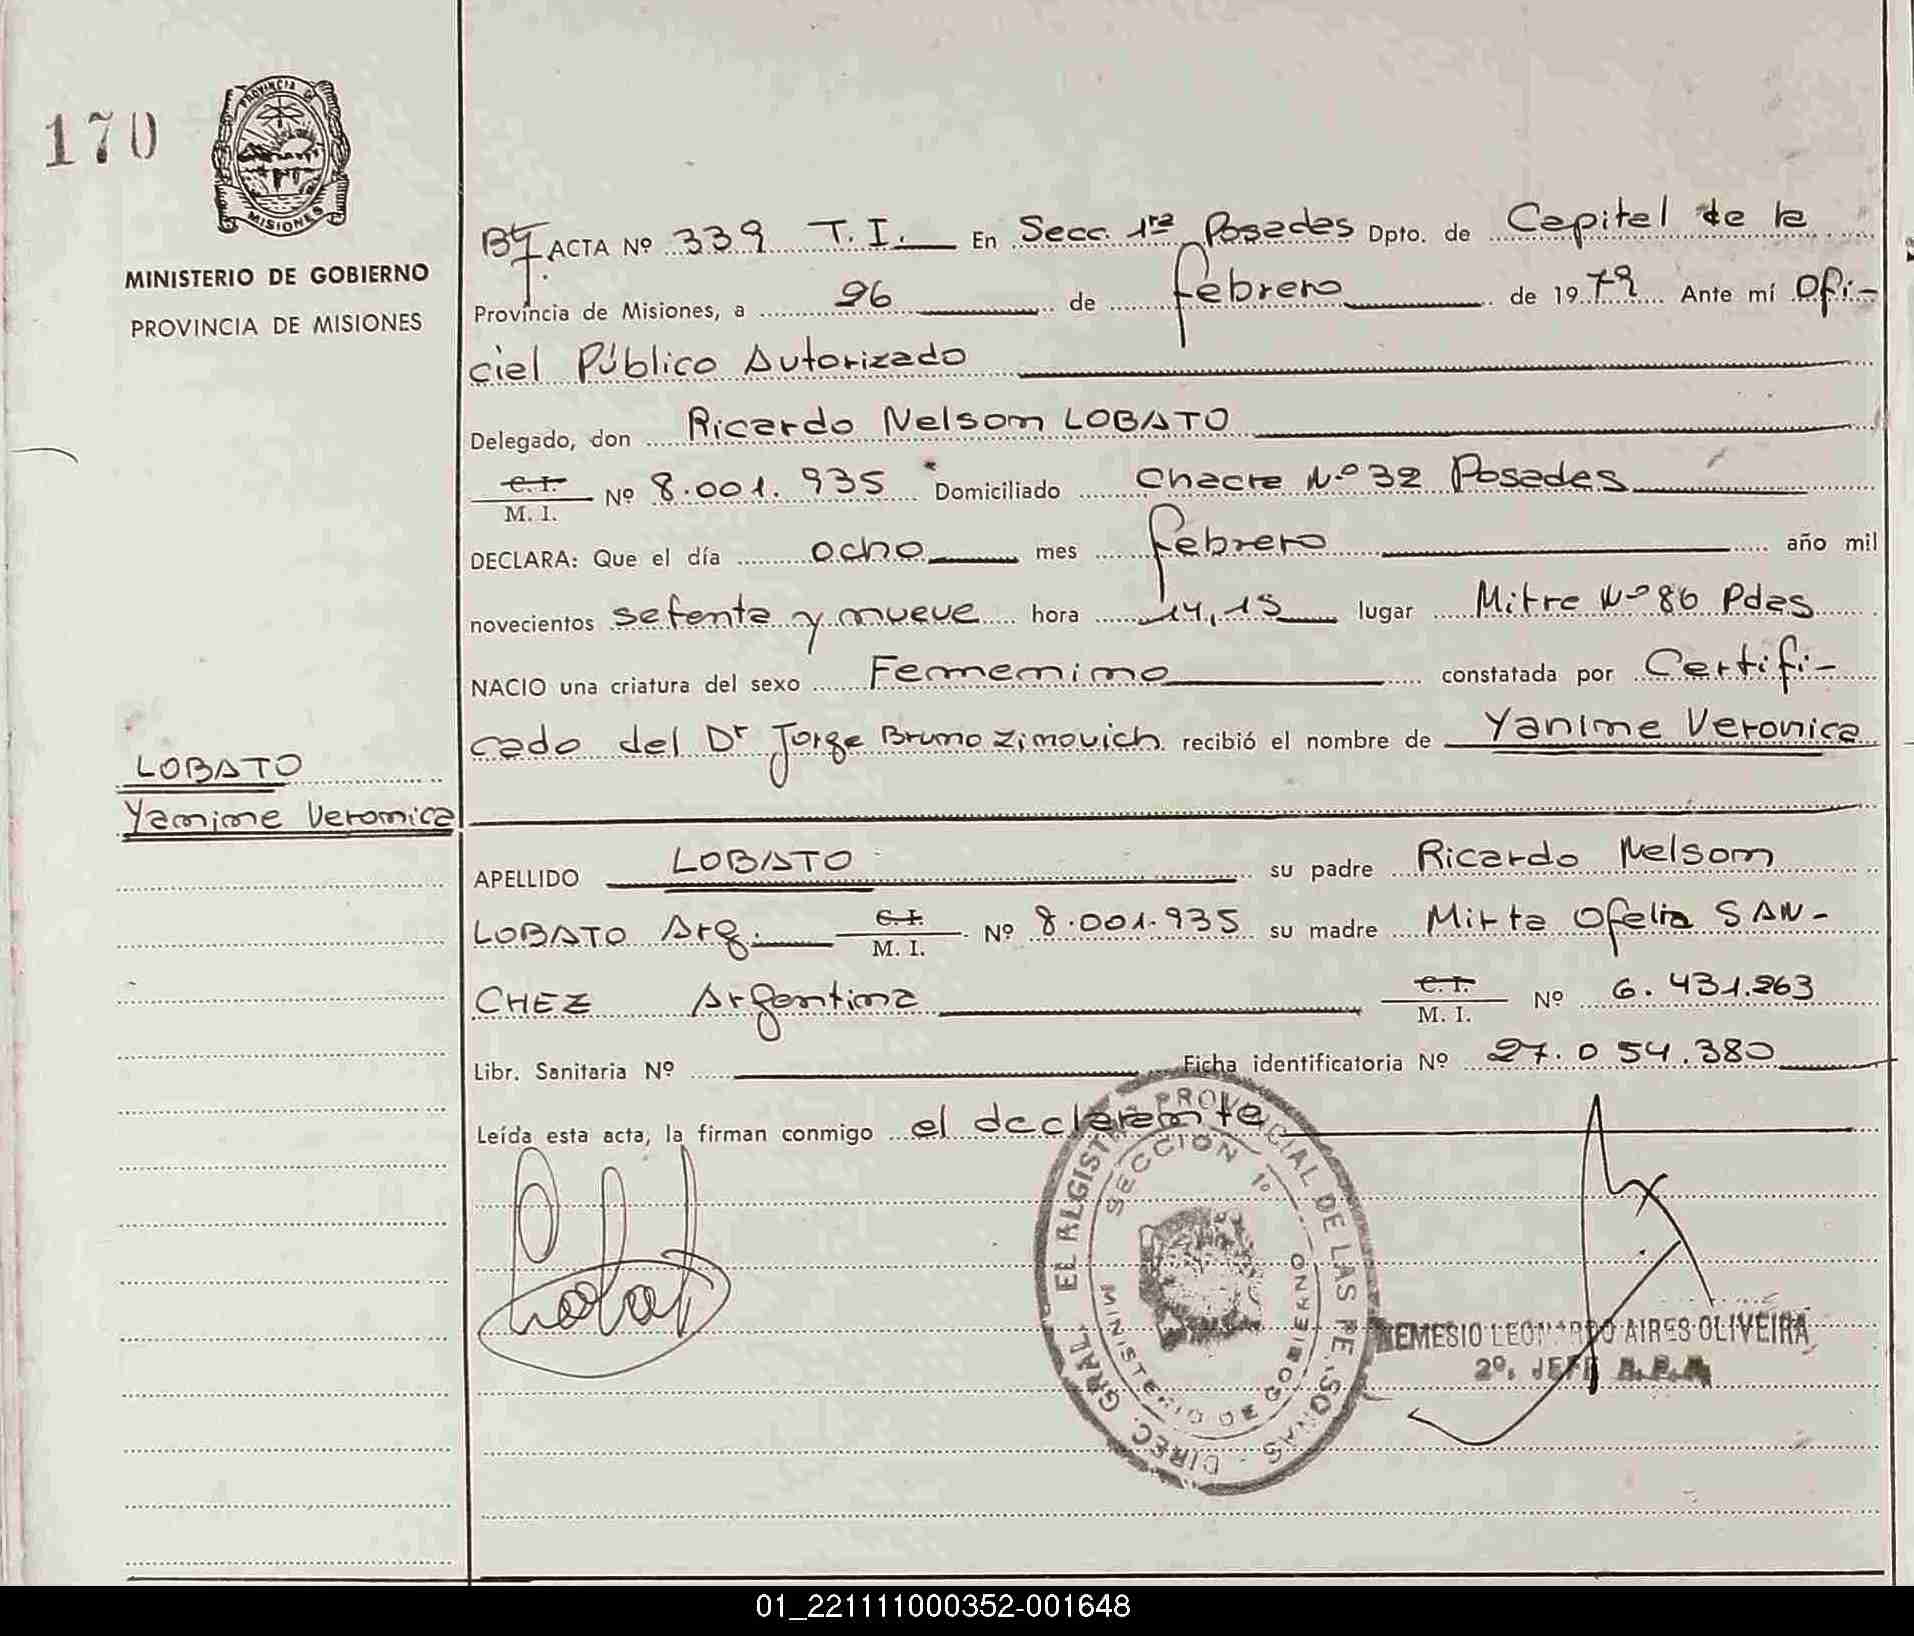 170
PROVINCIA DE
MISIONES
MINISTERIO DE GOBIERNO
PROVINCIA DE MISIONES
ACTA Nº 339 T. I. En Secc. 1ra Posadas Dpto. de Capital de la
Provincia de Misiones, a 26 de febrero de 1979 Ante mí Ofi-
cial Público Autorizado
Delegado, don Ricardo Nelson LOBATO
C.I.
M. I. Nº 8.001.935 Domiciliado Chacra Nº 32 Posadas
DECLARA: Que el día ocho mes febrero año mil
novecientos setenta y nueve hora 14,15 lugar Mitre Nº 86 Pdas
NACIO una criatura del sexo Femenino constatada por Certifi-
cado del Dr Jorge Bruno Zimovich recibió el nombre de Yanine Veronica
LOBATO
Yanine Veronica
APELLIDO LOBATO su padre Ricardo Nelson
LOBATO Arg. C.I.
M. I. Nº 8.001.935 su madre Mirta Ofelia SAN-
CHEZ Argentina C.I.
M. I. Nº 6.431.263
Libr. Sanitaria Nº Ficha identificatoria Nº 27.054.380
Leída esta acta, la firman conmigo el declarante
DIREC. GRAL. PROVINCIAL DE LAS PERSONAS
SECCION 1º
MINISTERIO DE GOBIERNO
NEMESIO LEONARDO AIRES OLIVEIRA
2º. JEFE
01_221111000352-001648